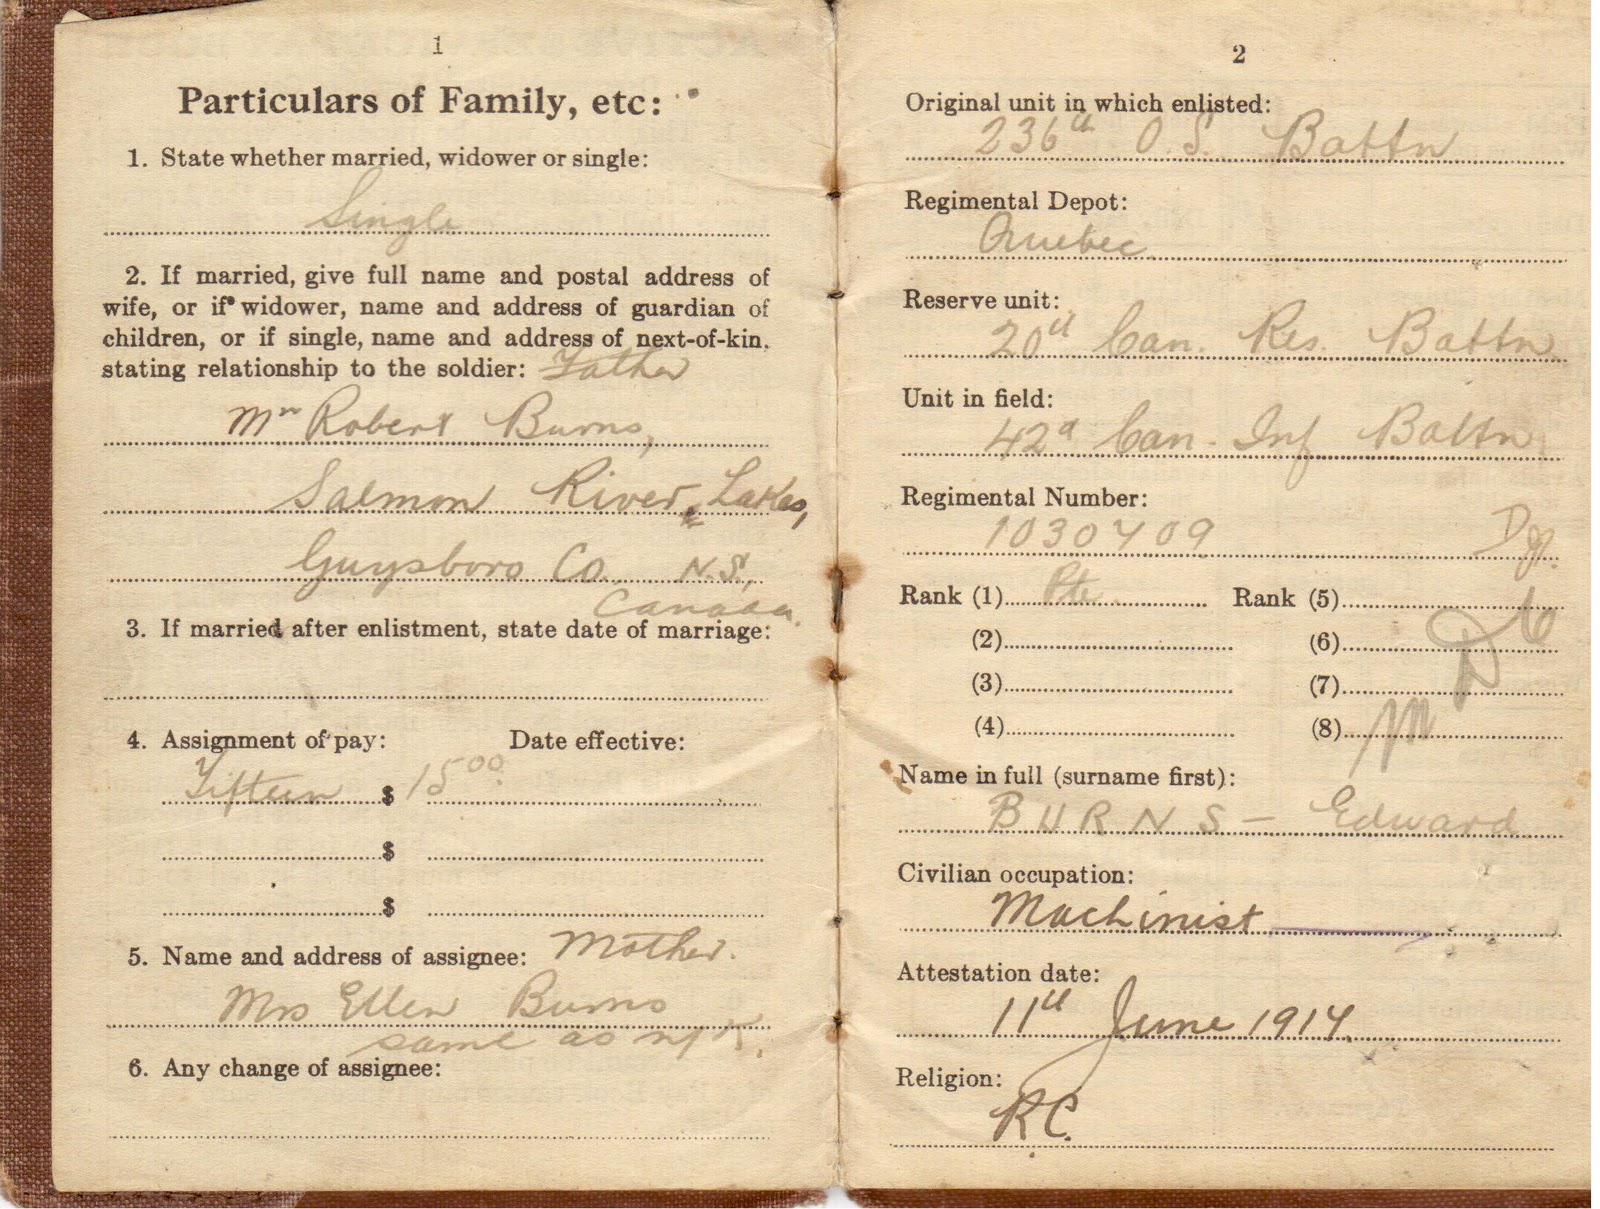 1
Particulars of Family, etc:
1. State whether married, widower or single:
Single
2. If married, give full name and postal address of
wife, or if widower, name and address of guardian of
children, or if single, name and address of next-of-kin.
stating relationship to the soldier: Father
Mr Robert Burns,
Salmon River, Lakes,
Guysboro Co. N.S.,
Canada.
3. If married after enlistment, state date of marriage:
4. Assignment of pay: Date effective:
Fifteen $ 15 00
$
$
5. Name and address of assignee: Mother.
Mrs Ellen Burns
same as n/K.
6. Any change of assignee:
2
Original unit in which enlisted:
236th O.S. Battn
Regimental Depot:
Quebec
Reserve unit:
20th Can. Res. Battn
Unit in field:
42d Can. Inf Battn
Regimental Number:
1030409
Rank (1) Pte Rank (5)
(2) (6)
(3) (7)
(4) (8)
Name in full (surname first):
BURNS - Edward
Civilian occupation:
Machinist
Attestation date:
11th June 1917.
Religion:
R.C.